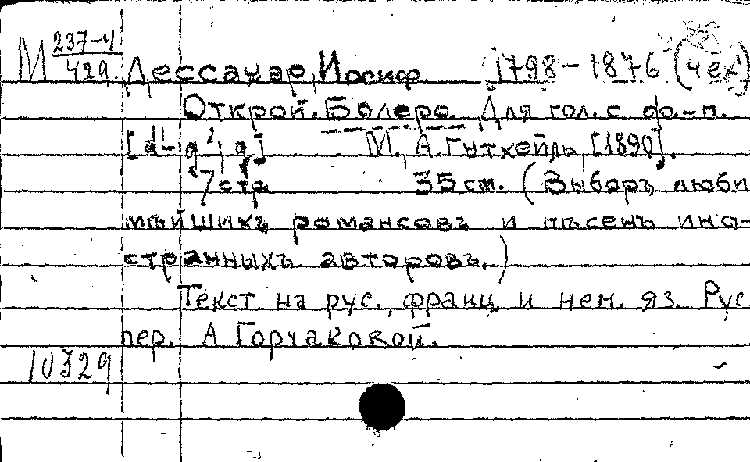 М 237-4/429 Дессауэр, Иосиф. 1798-1876 (чех)
Открой. Болеро. Для гол. с ф.-п.
[d¹-g²; a] М., А. Гутхейль, [1890].
7 стр 35 см. (Выборъ люби
мѣйшихъ романсовъ и пѣсенъ ино-
странныхъ авторовъ.)
Текст на рус., франц и нем. яз. Рус
пер. А Горчаковой.
10329